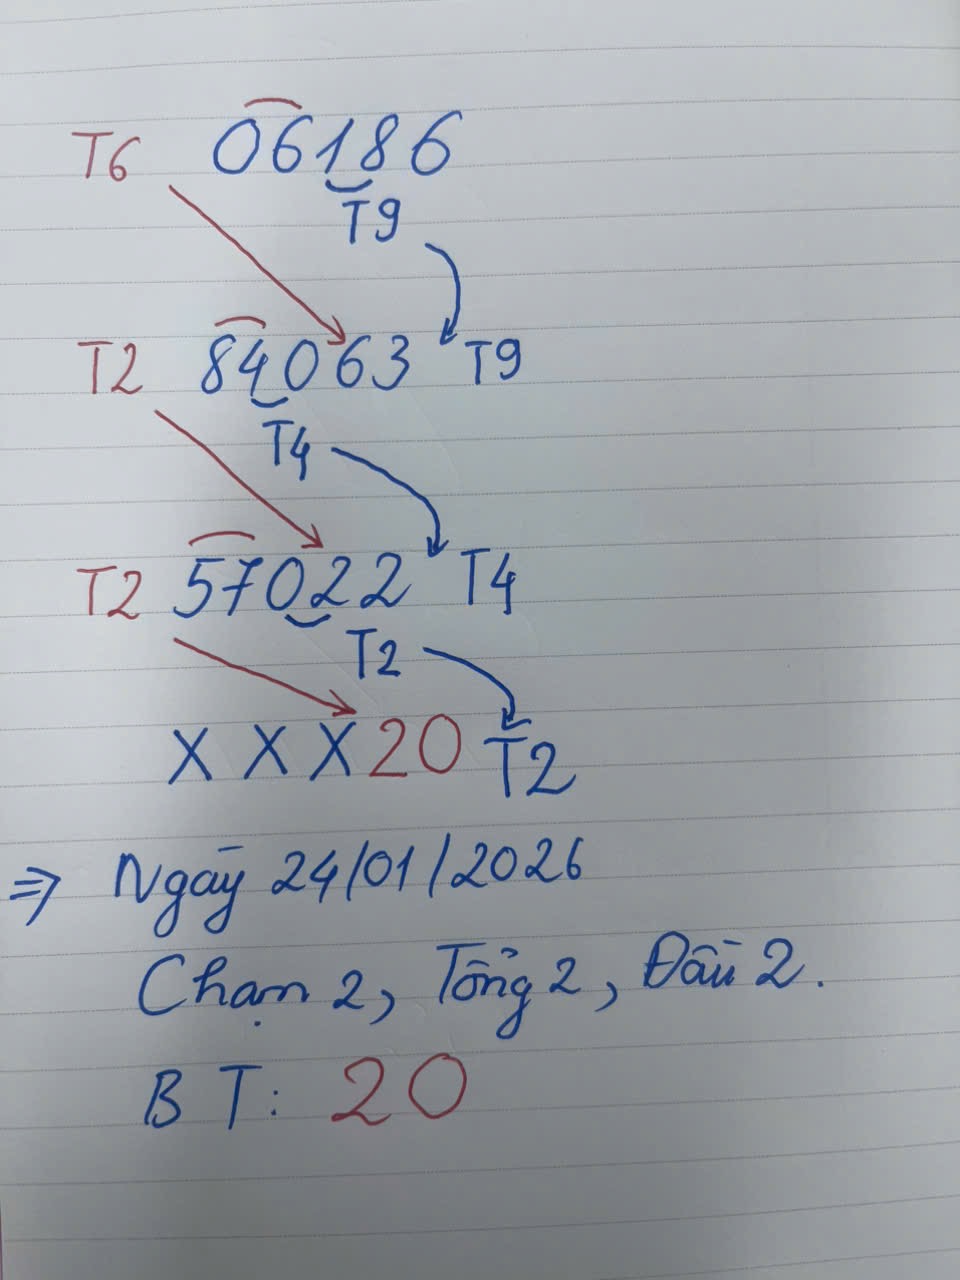 T6 06186
T9
T2 84063 T9
T4
T2 57022 T4
T2
X X X 20 T2
⇒ Ngày 24/01/2026
Chạm 2, Tổng 2, Đầu 2.
B T: 20